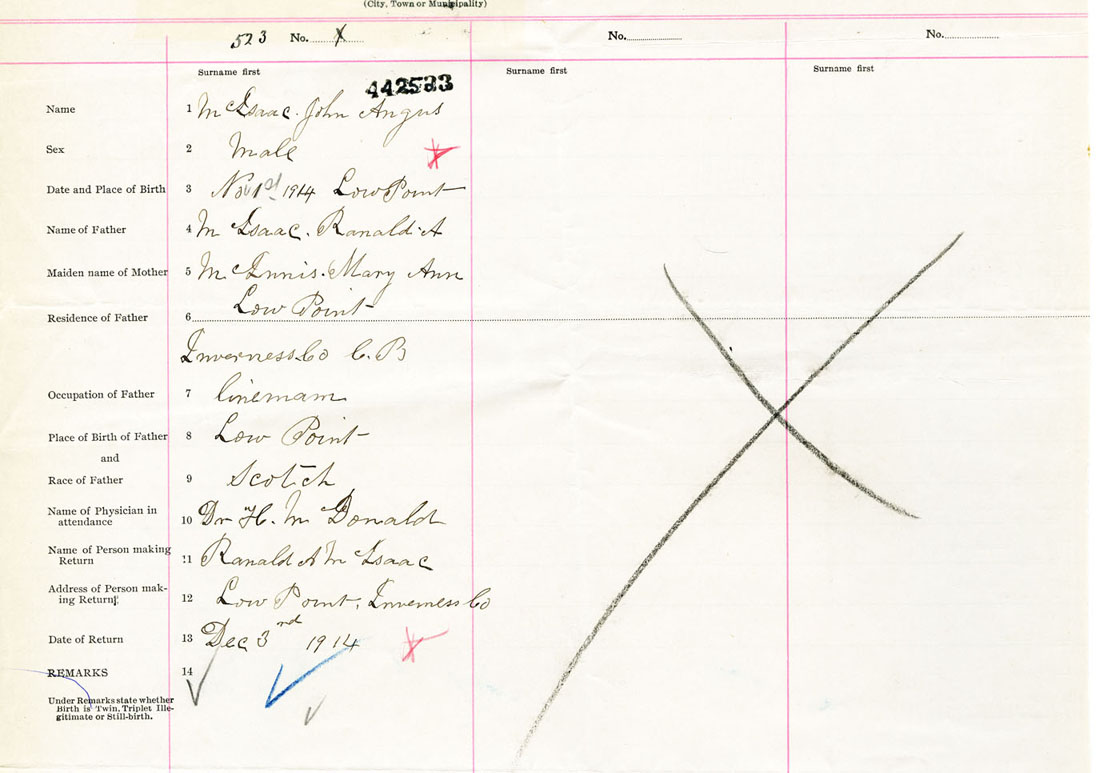 (City, Town or Municipality)
523 No. X No. No.
Surname first Surname first Surname first
442533
Name 1 Mc Isaac. John Angus
Sex 2 Male
Date and Place of Birth 3 Nov 1st 1914 Low Point
Name of Father 4 Mc Isaac. Ranald A
Maiden name of Mother 5 Mc Innis. Mary Ann
Low Point
Residence of Father 6
Inverness Co C. B
Occupation of Father 7 linemam
Place of Birth of Father 8 Low Point
and
Race of Father 9 Scotch
Name of Physician in
attendance 10 Dr H. Mc Donald
Name of Person making
Return 11 Ranald A Mc Isaac
Address of Person mak-
ing Return 12 Low Point, Inverness Co
Date of Return 13 Dec 3rd 1914
REMARKS 14
Under Remarks state whether
Birth is Twin, Triplet Ille-
gitimate or Still-birth.